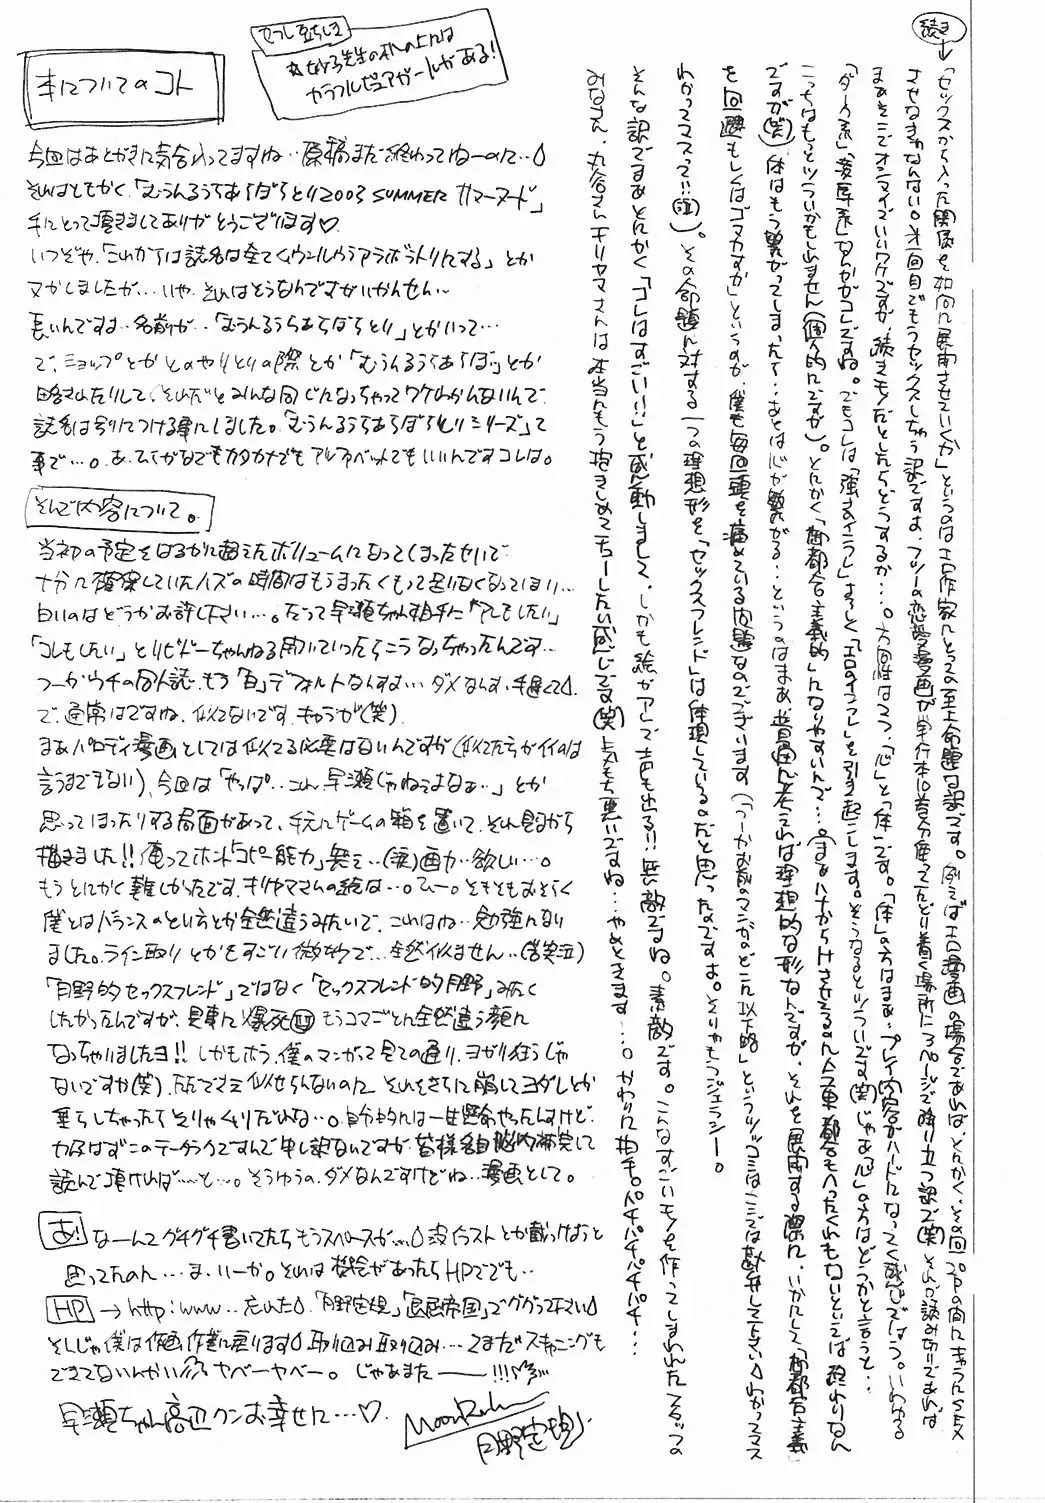 続き
「セックスから入った関係を如何に展開させていくか」というのはエロ作家にとっての至上命題な訳です。例えばエロ漫画の場合であれば、とにかく、その回プPの内にキャラにSEX
させなきゃなんない。第一回目でもうセックスしちゃう訳ですよ、フツーの恋愛漫画が単行本10巻分使ってたどり着く場所に20ページで降り立つ訳で(笑)そんが読み切りであれば
まぁそこでオシマイでいいワケですが、続きモノだとしたらどうするか・・・。方向性は2つ、「心」と「体」です。「体」の方はまぁ、プレイ内容がハードになってく感じではつ。いわゆる
「ダーク系」「凌辱系」なんかがコレですね。でもコレは「強さのインフレ」よろしく「エロのインフレ」を引き起こします。そうなるとツライです(笑)じゃあ「心」の方はどうかと言うと・・
こっちはもっとツライかもしれません(個人的にですが)。とにかく「御都合主義的」になりやすいんで・・・。
ですが(笑)体はもう繋がってしまったら・・あとは心が繋がる・・というのはまぁ、普通に考えれば理想的な形なんですが、それを展開する際に、いかにして「御都合主義」
を回避もしくはゴマカすか」というのが、僕も毎回頭を痛めている問題なのでございます(「つーかお前のマンガのどこに以下略」というツッコミはここでは勘弁して下さい わかってマス
わかってマスって!!(泣))。その命題に対する一つの理想形を「セックスフレンド」は体現している。だと思ったのですよ。そりゃもうジェラシー。
そんな訳でまあとにかく「コレはすごい!!」と感動しまして、しかも絵がアレで声も出る!!無敵ですね。素敵です。こんなすごいモノを作ってしまわれたスタッフの
みなさん、丸谷さんキリヤマさんは本当にもう抱きしめてチューしたい感じです(笑)気もち悪いですね・・やめときます・・・。かわりに拍手。パチパチパチパチパチ・・・
せつし豆ちしき
カラフルピュアガールがある!
本についてのコト
今回はあとがきに気合入ってますね・・原稿まだ終わってねーのに・・
それはともかく、「むうんるうらあらぼらとり2003 SUMMER サマーヌード」
手にとって頂きましてありがとうございます♡
いつぞや、「これからは誌名は全てムウンルウラアラボラトリにする」とか
ヌかしましたが・・・いや、それはそうなんですがいかんせん〜
長いんですよ・・名前が・・「むうんるうらあらぼらとり」とかいって・・・
で、ショップとかとのやりとりの際とか「むうんるうらあらぼ」とか
略されたりして、それだとみんな同じになっちゃってワケわかんないんで、
誌名は別につける事にしました。「むうんるうらあらぼらとりシリーズ」って
事で・・・。あ、ひらがなでもカタカナでもアルファベットでもいいんですコレは。
そんで内容について。
当初の予定をはるかに超えたボリュームになってしまったせいで
十分に確保していたハズの時間はもうまったくもって足りなくなってしまい・・・
白いのはどうかお許し下さい・・・。だって早瀬ちゃん相手に「アレもしたい」
「コレもしたい」とリビドーちゃんねる開いていったらこうなっちゃったんです・・・
つーかウチの同人誌、もう「白」デフォルトなんすよ・・・ダメなんす、手遅くて
で、通常はですね、似てないです、キャラが(笑)
まぁパロディ漫画としては似てる必要はないんですが(似てた方がイイのは
言うまでもない)、今回は「やっぱ・・こんな早瀬じゃねぇよなぁ・・」とか
思ってしまったりする局面があって、手元にゲームの箱を置いて、それ見ながら
描きました!!俺ってホント「コピー能力」無え・・(涙)画力・・欲しい・・・。
もうとにかく難しかったです、キリヤマさんの絵は・・。ひー。そもそもおそらく
僕とはバランスのとり方とか全然違うみたいで、これはね・・勉強になり
ました。ライン取りとかもすごい微妙で・・全然似ません・・(苦笑泣)
「月野的セックスフレンド」ではなく「セックスフレンド的月野」みたく
したかったんですが、見事に爆死 もうコマごとに全然違う顔に
なっちゃいましたヨ!!しかもホラ、僕のマンガって見ての通り、ヨガり狂うじゃ
ないですか(笑)、ただでさえ似せらんないのに、それをさらに崩してヨダレとか
垂らしちゃったらそりゃムリだわな・・。自分的には一生懸命やったんすけど、
力及ばずこのテータラクですんで申し訳ないですが、皆様各自脳内補完して
読んで頂ければ・・・と・・。そうゆうの、ダメなんですけどね・・漫画として。
あ! なーんてグチグチ書いてたらもうスペースが・・・没イラストとか載っけようと
思ってたのに・・・ま、いーか。それは機会があったらHPででも・・
HP → http:www.. 忘れた 「月野定規」「良識帝国」でググって下さい
そんじゃ僕は作画作業に戻ります 取り込み取り込み・・・てまだスキャニングも
できてないんかい ヤベーヤベー。じゃあまたーー!!!
早瀬ちゃん高辺クンお幸せに・・・♡
MoonRuler
月野定規